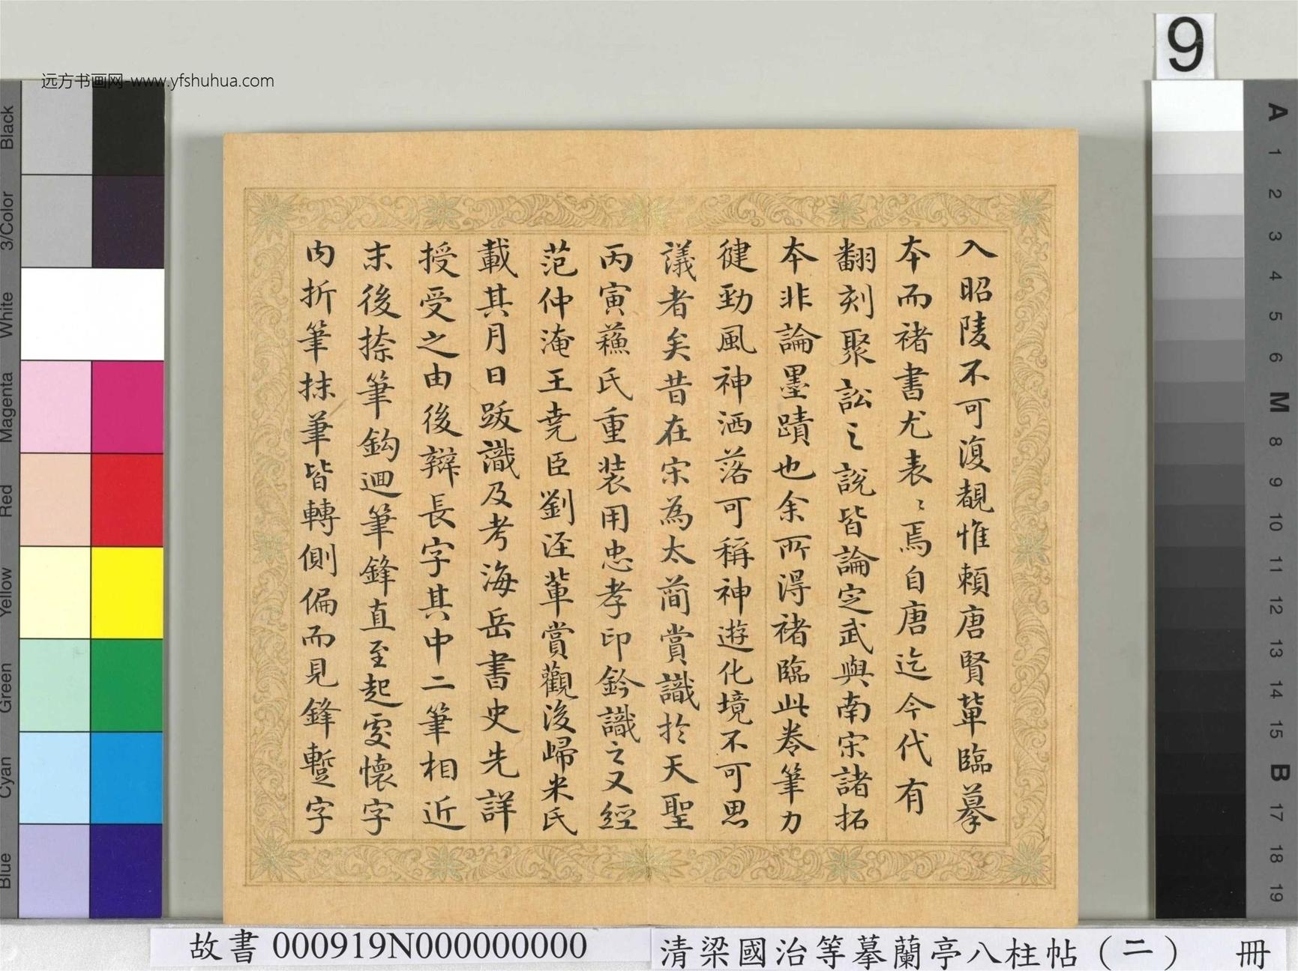 远方书画网-www.yfshuhua.com
9
入昭陵不可復覩惟賴唐賢輩臨摹
本而褚書尤表〻焉自唐迄今代有
翻刻聚訟之說皆論定武與南宋諸拓
本非論墨蹟也余所得褚臨此卷筆力
健勁風神洒落可稱神遊化境不可思
議者矣昔在宋為太簡賞識於天聖
丙寅蘓氏重装用忠孝印鈐識之又經
范仲淹王堯臣劉涇輩賞觀後歸米氏
載其月日跋識及考海岳書史先詳
授受之由後辯長字其中二筆相近
末後捺筆鈎迴筆鋒直至起處懷字
内折筆抹筆皆轉側偏而見鋒蹔字
Black
3/Color
White
Magenta
Red
Yellow
Green
Cyan
Blue
A
1
2
3
4
5
6
M
8
9
10
11
12
13
14
15
B
17
18
19
故書 000919N000000000
清梁國治等摹蘭亭八柱帖（二） 冊